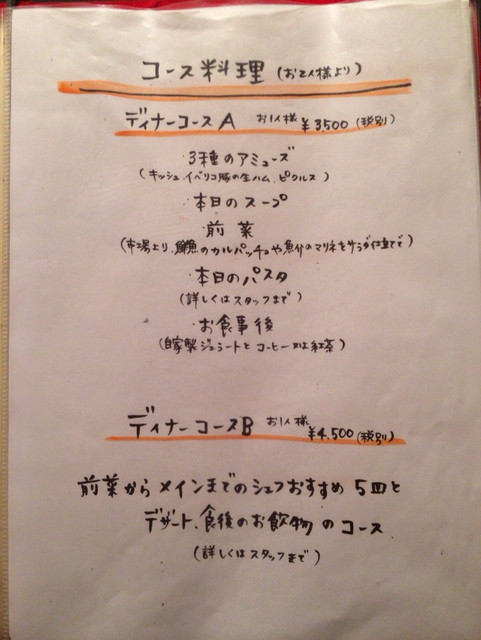 コース料理 (お2人様より)
ディナーコースA お1人様 ¥3,500 (税別)
・3種のアミューズ
(キッシュ、イベリコ豚の生ハム、ピクルス)
・本日のスープ
・前菜
(市場より、鮮魚のカルパッチョや魚介のマリネをサラダ仕立てで)
・本日のパスタ
(詳しくはスタッフまで)
・お食事後
(自家製ジェラートとコーヒー又は紅茶)
ディナーコースB お1人様 ¥4,500 (税別)
前菜からメインまでのシェフおすすめ 5皿と
デザート、食後のお飲物のコース
(詳しくはスタッフまで)